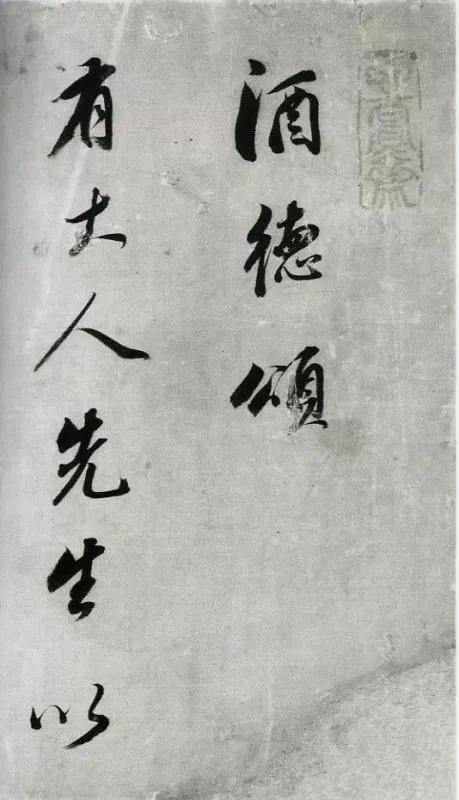 酒德頌
有大人先生以